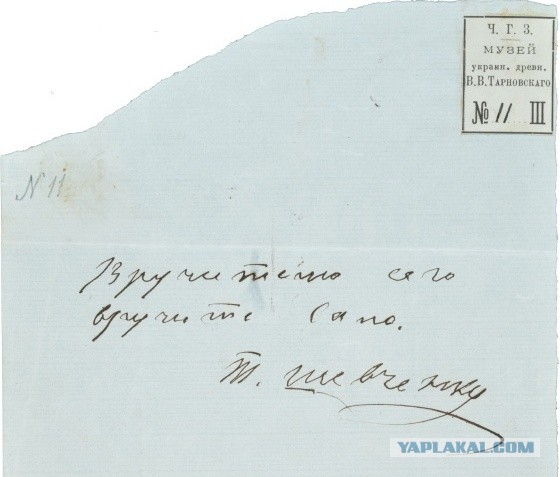 Ч. Г. З.
МУЗЕЙ
украин. древн.
В.В.ТАРНОВСКАГО
№ 11 III
N 11
Вручителю сего
вручите Сапо.
Т. Шевченко
YAPLAKAL.COM